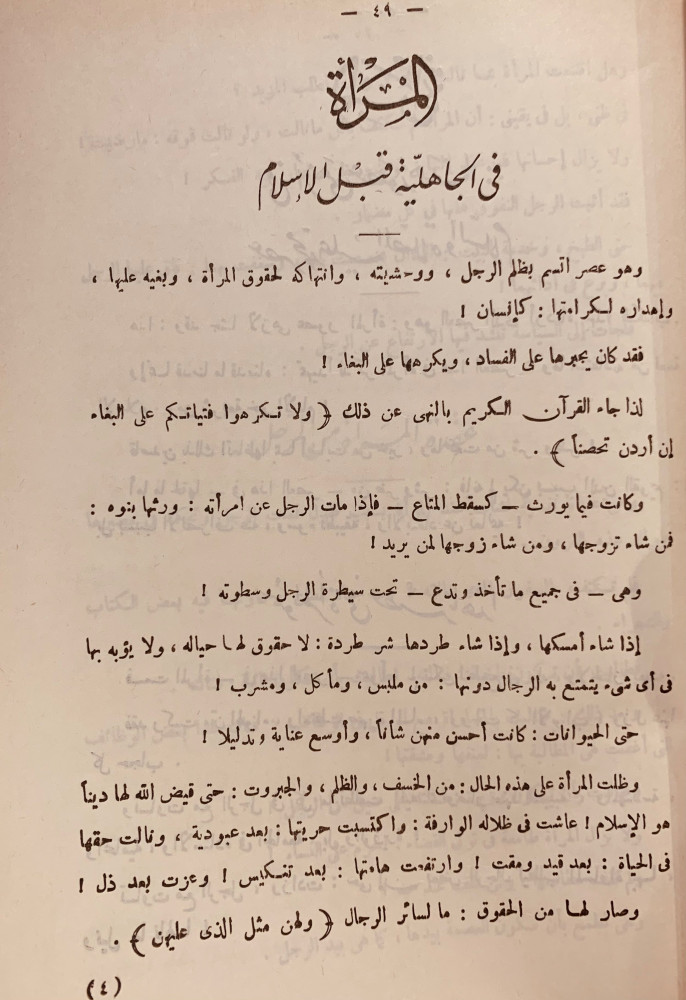 — ٤٩ —
المرأة
في الجاهليّة: قبل الإسلام
وهو عصر اتسم بظلم الرجل ، ووحشيته ، وانتهاكه لحقوق المرأة ، وبغيه عليها ،
وإهداره لكرامتها : كإنسان !
فقد كان يجبرها على الفساد ، ويكرهها على البغاء !
لذا جاء القرآن الكريم بالنهى عن ذلك ﴿ ولا تكرهوا فتياتكم على البغاء
إن أردن تحصناً ﴾ .
وكانت فيما يورث — كسقط المتاع — فإذا مات الرجل عن امرأته : ورثها بنوه :
فمن شاء تزوجها ، ومن شاء زوجها لمن يريد !
وهى — فى جميع ما تأخذ وتدع — تحت سيطرة الرجل وسطوته !
إذا شاء أمسكها ، وإذا شاء طردها شر طردة : لا حقوق لها حياله ، ولا يؤبه بها
فى أى شىء يتمتع به الرجال دونها : من ملبس ، ومأكل ، ومشرب !
حتى الحيوانات : كانت أحسن منهن شأناً ، وأوسع عناية وتدليلا !
وظلت المرأة على هذه الحال : من الخسف ، والظلم ، والجبروت : حتى قيض الله لها ديناً
هو الإسلام ! عاشت فى ظلاله الوارفة : واكتسبت حريتها : بعد عبودية ، ونالت حقها
فى الحياة : بعد قيد ومقت ! وارتفعت هامتها : بعد تنكيس ! وعزت بعد ذل !
وصار لها من الحقوق : ما لسائر الرجال ﴿ ولهن مثل الذى عليهن ﴾ .
(٤)